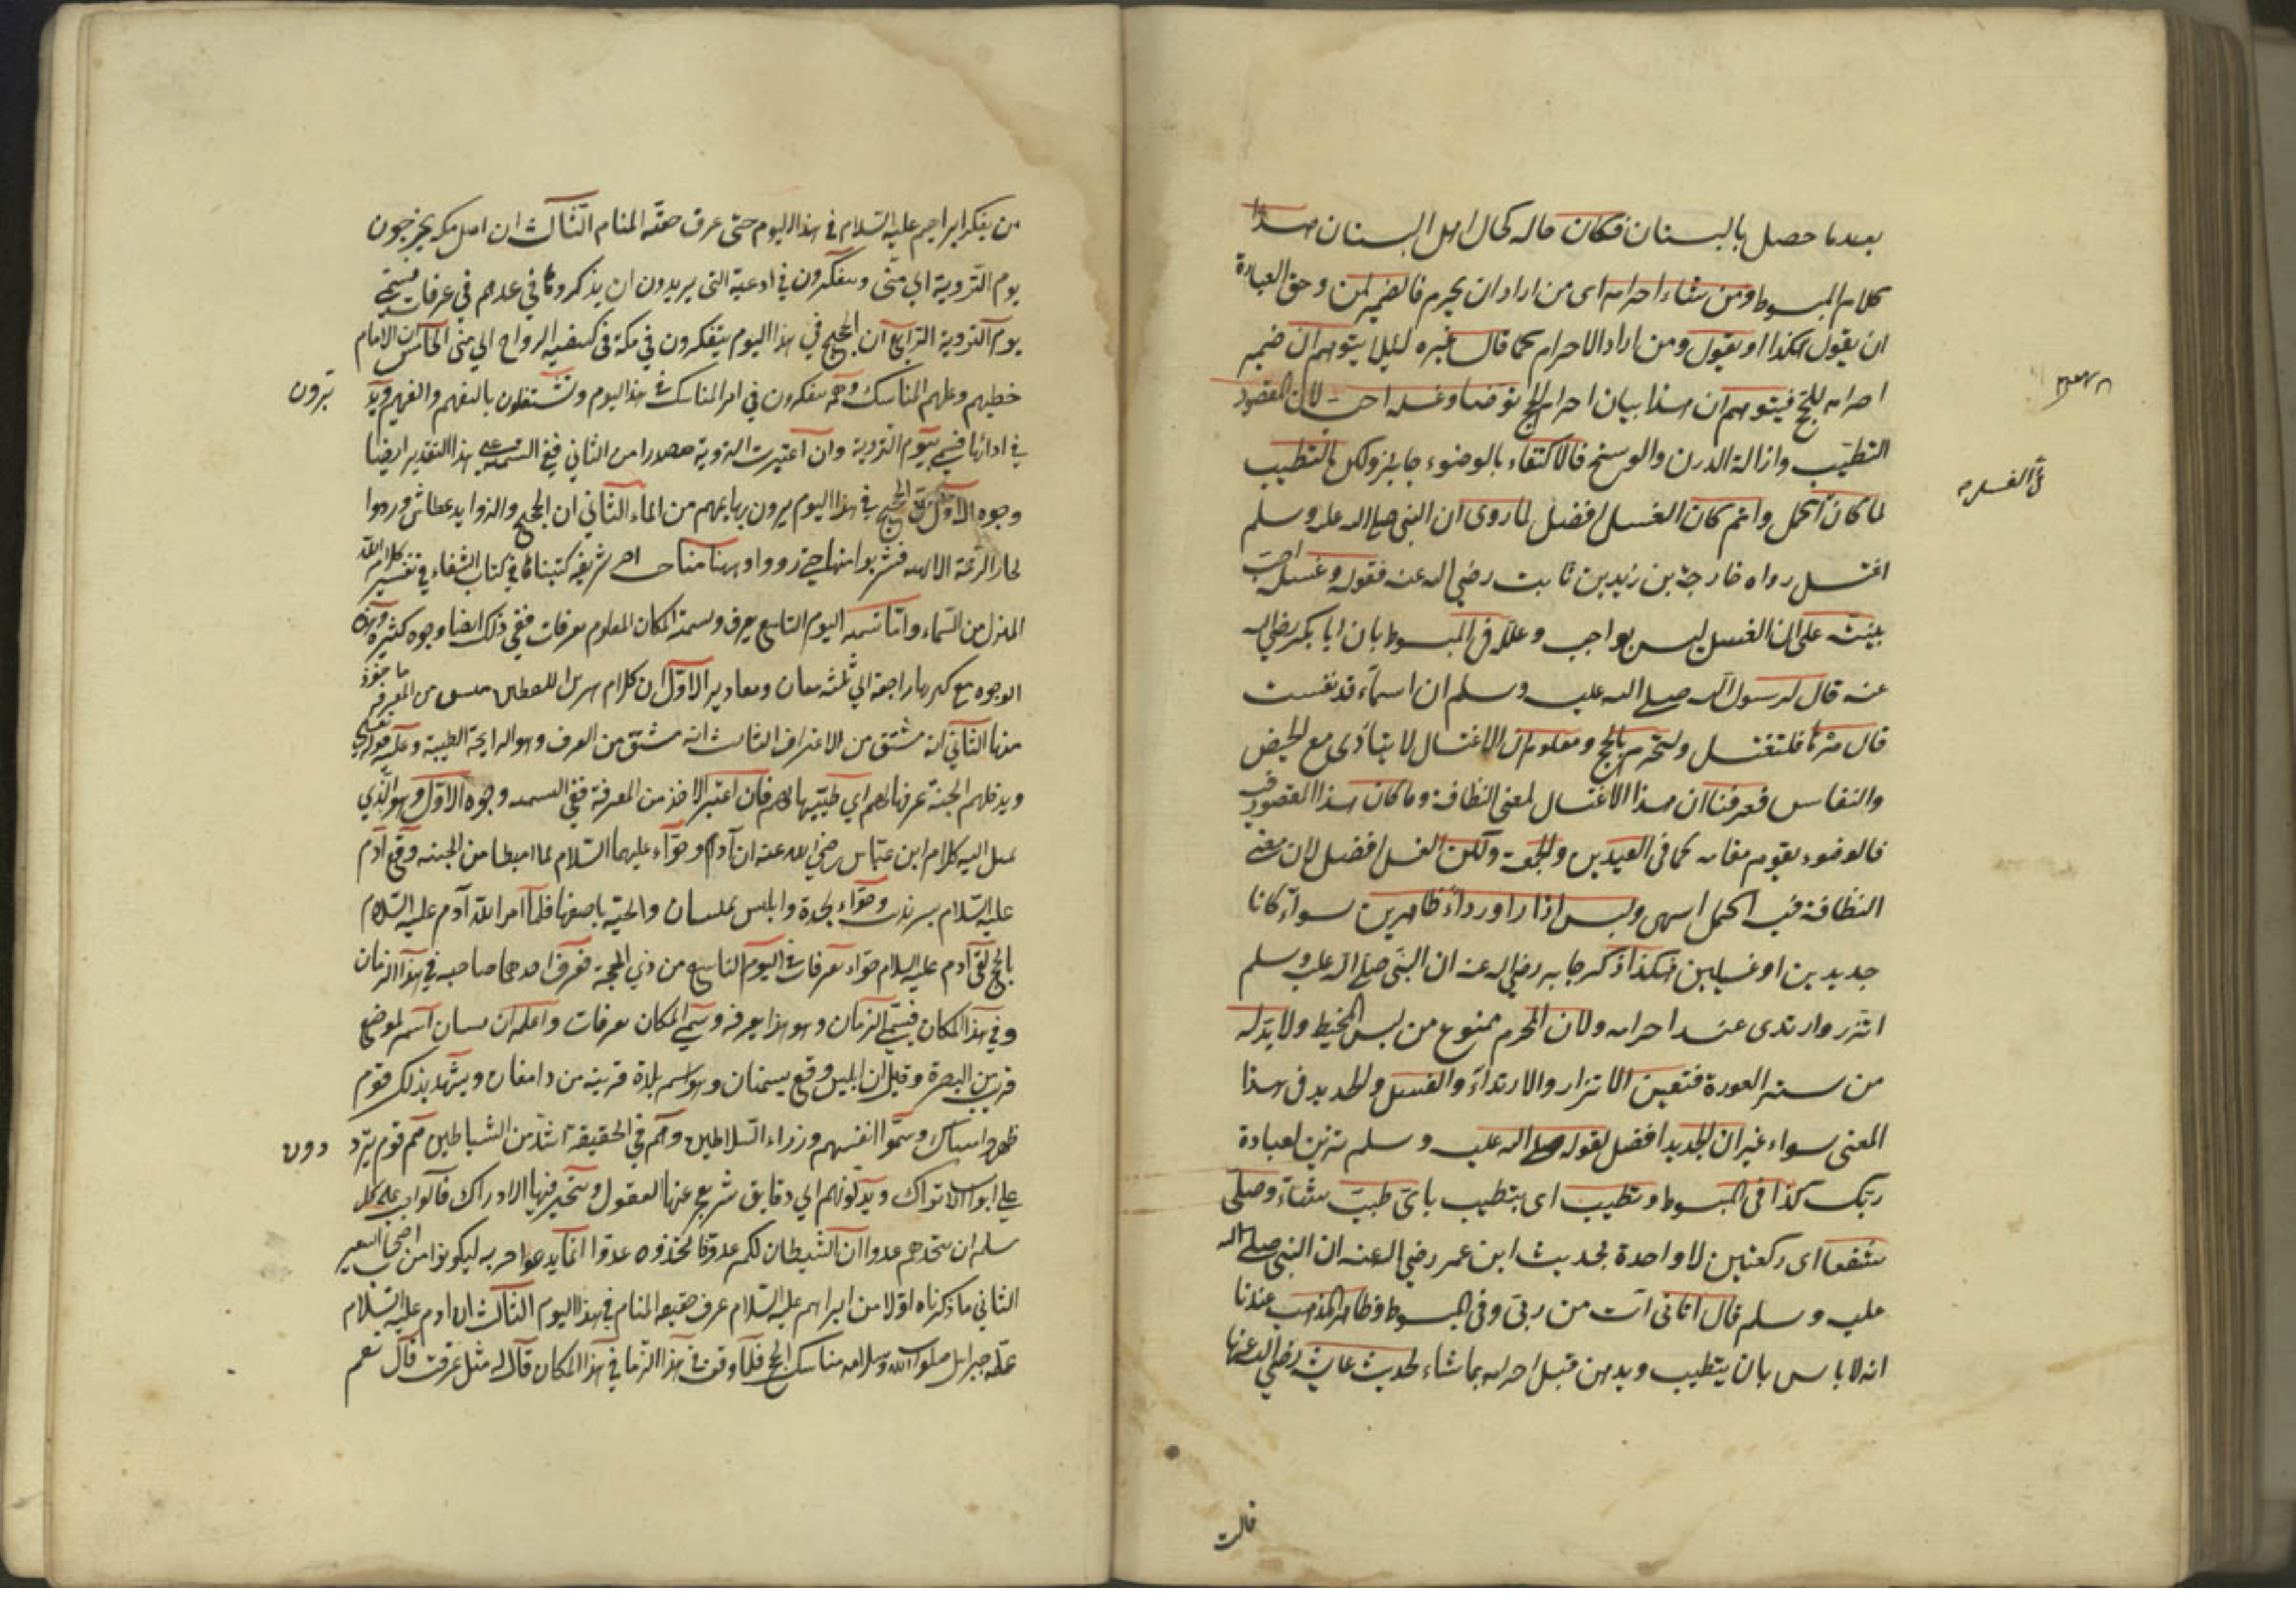 بعدما حصل بالبستان فكان حاله كحال اهل البستان هذا
كلام المبسوط ومن شاء احرامه اى من اراد ان يحرم فالضمير لمن وحق العبارة
ان يقول هكذا او يقول ومن اراد الاحرام كما قال غيره لئلا يتوهم ان ضمير
احرامه للحج فيتوهم ان هذا بيان احرام الحج توضا وغسله احب لان المقصود
التطيب وازالة الدرن والوسخ فالاكتفاء بالوضوء جايز ولكن التطيب
لما كان اكمل واتم كان الغسل افضل لما روى ان النبى صلى الله عليه وسلم
اغتسل رواه خارجة بن زيد بن ثابت رضي الله عنه فقوله وغسله احب
يبنى على ان الغسل ليس بواجب وعلله فى المبسوط بان ابا بكر رضي الله
عنه قال لرسول الله صلى الله عليه وسلم ان اسماء قد نفست
قال مرها فلتغتسل ولتحرم بالحج ومعلوم ان الاغتسال لا يتادى مع الحيض
والنفاس فعرفنا ان هذا الاغتسال لمعنى النظافة وما كان هذا المقصود فيه
فالوضوء يقوم مقامه كما فى العيدين والجمعة ولكن الغسل افضل لان معنى
النظافة فيه اكمل انتهى ولبس ازارا ورداء طاهرين سواء كانا
جديدين او غسيلين هكذا ذكر جابر رضي الله عنه ان النبى صلى الله عليه وسلم
اتزر وارتدى عند احرامه ولان المحرم ممنوع من لبس المخيط ولا بد له
من ستر العورة فتعين الاتزار والارتداء والغسيل والجديد فى هذا
المعنى سواء غير ان الجديد افضل لقوله صلى الله عليه وسلم تزين لعبادة
ربك كذا فى المبسوط وتطيب اى يتطيب باى طيب شاء وصلى
شفعا اى ركعتين لا واحدة لحديث ابن عمر رضي الله عنه ان النبى صلى الله
عليه وسلم قال اتانى آت من ربى وفى المبسوط وظاهر المذهب عندنا
انه لا باس بان يتطيب ويدهن قبل احرامه بما شاء لحديث عايشة رضي الله عنها
قالت
من يفكر ابراهيم عليه السلام في هذا اليوم حتى عرف حقيقة المنام الثالث ان اهل مكة يخرجون
يوم التروية الي منى ويتفكرون في ادعية التى يريدون ان يذكروها في غدهم في عرفات فسمى
يوم التروية الرابع ان الحجيج في هذا اليوم يتفكرون في مكة في كيفية الرواح الي منى الخامس ان الامام
خطبهم وعلمهم المناسك وهم يتفكرون في امر المناسك في هذا اليوم ويشتغلون بالتفهم والتفهيم
في ادائها فسمى بيوم التروية وان اعتبرت التروية مصدرا من الثاني ففي التسمية على هذا التقدير ايضا
وجوه الاول ان الحجيج في هذا اليوم يروون بهايمهم من الماء الثاني ان الحجيج والزوايد عطاش وردوا
فشربوا منها حتى رووا وههنا شريفة كتبناها في كتاب الشفاء في تفسير كلام الله
المنزل من السماء واما تسمية اليوم التاسع بعرفة وتسمية المكان المعلوم بعرفات ففي ذلك ايضا وجوه كثيرة وهذه
الوجوه مع كثرتها راجعة الي ثلثة معان الاول ان كلام من المعرفة
منها الثاني انه مشتق من الاعتراف الثالث انه مشتق من العرف وهو الرايحة الطيبة وعليه قوله تعالى
ويدخلهم الجنة عرفها لهم اي طيبها لهم فان اعتبر الاخذ من المعرفة ففي التسمية وجوه الاول وهو الذي
يميل اليه كلام ابن عباس رضي الله عنه ان آدم وحواء عليهما السلام لما اهبطا من الجنة وقع آدم
عليه السلام بسرنديب وحواء بجدة وابليس بميسان والحية باصفهان فلما امر الله آدم عليه السلام
بالحج لقي آدم عليه السلام حواء بعرفات في اليوم التاسع من ذي الحجة فعرف احدهما صاحبه في هذا الزمان
وفي هذا المكان فسمى الزمان وهو هذا بعرفة وسمي المكان بعرفات واعلم ان ميسان اسم لموضع
قريب من البصرة وقيل ان ابليس وقع بسمنان وهو اسم بلدة قريبة من دامغان ويشهد بذلك قوم
ظهروا وسموا انفسهم وزراء السلاطين وهم في الحقيقة اشد من الشياطين هم قوم
على ابواب الاتراك الي دقايق شر يعجز عنها العقول وتتحير فيها الادراك فالواجب على كل
مسلم ان يتخذهم عدوا ان الشيطان لكم عدو فاتخذوه عدوا انما يدعوا حزبه ليكونوا من اصحاب السعير
الثاني ما ذكرناه اولا من ابراهيم عليه السلام عرف حقيقة المنام في هذا اليوم الثالث ان ادم عليه السلام
علمه جبرايل صلوات الله وسلامه مناسك الحج فلما وقف في هذا الزمان في هذا المكان قال له هل عرفت قال نعم